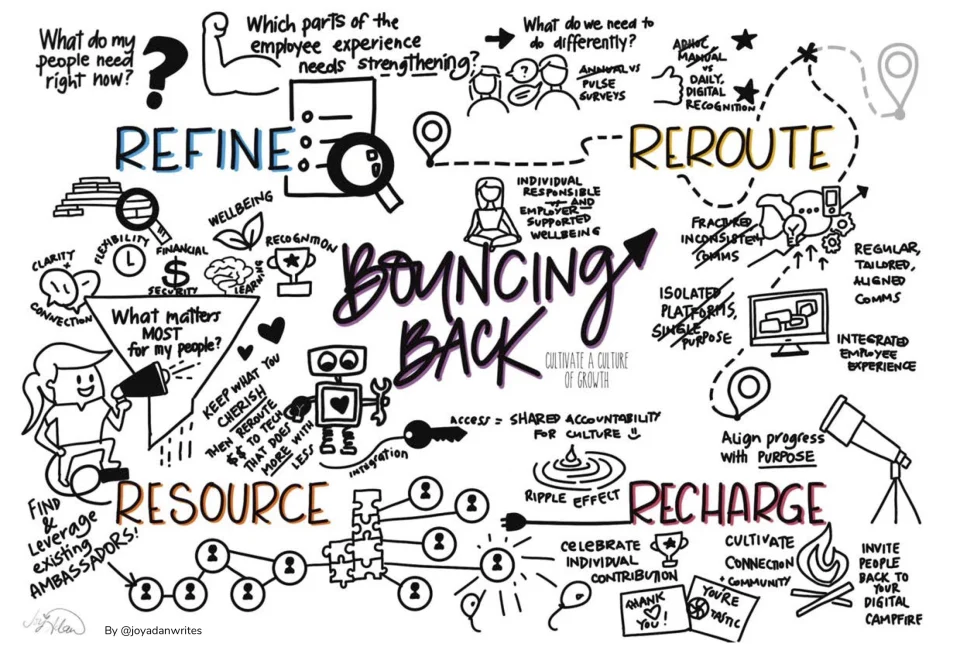 What do my
people need
right now?
?
Which parts of the
employee experience
needs strengthening?
What do we need to
do differently?
?
ANNUAL VS
PULSE
SURVEYS
ADHOC
MANUAL
VS
DAILY,
DIGITAL
RECOGNITION
REFINE
REROUTE
INDIVIDUAL
RESPONSIBLE
AND
EMPLOYER
SUPPORTED
WELLBEING
FRACTURED
INCONSISTENT
COMMS
REGULAR,
TAILORED,
ALIGNED
COMMS
ISOLATED
PLATFORMS,
SINGLE
PURPOSE
INTEGRATED
EMPLOYEE
EXPERIENCE
CLARITY
+
CONNECTION
FLEXIBILITY
FINANCIAL
$
SECURITY
WELLBEING
LEARNING
RECOGNITION
What matters
MOST
for my people?
BOUNCING
BACK
CULTIVATE A CULTURE
OF GROWTH
KEEP WHAT YOU
CHERISH
THEN REROUTE
$$ TO TECH
THAT DOES
MORE WITH
LESS
INTEGRATION
ACCESS = SHARED ACCOUNTABILITY
FOR CULTURE
RIPPLE EFFECT
Align progress
with PURPOSE
RESOURCE
RECHARGE
FIND
&
Leverage
existing
AMBASSADORS!
CELEBRATE
INDIVIDUAL
CONTRIBUTION
THANK
YOU!
YOU'RE
TASTIC
CULTIVATE
CONNECTION
+ COMMUNITY
INVITE
PEOPLE
BACK TO
YOUR
DIGITAL
CAMPFIRE
By @joyadanwrites